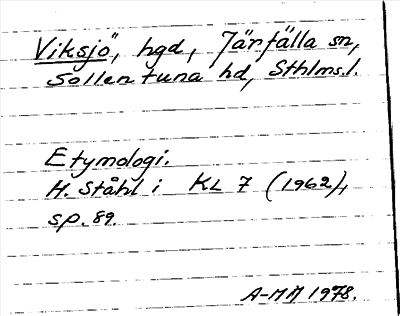 Viksjö, hgd, Järfälla sn,
Sollentuna hd, Sthlms.l.
Etymologi.
H. Ståhl i KL 7 (1962),
sp. 89.
A-MM 1978.